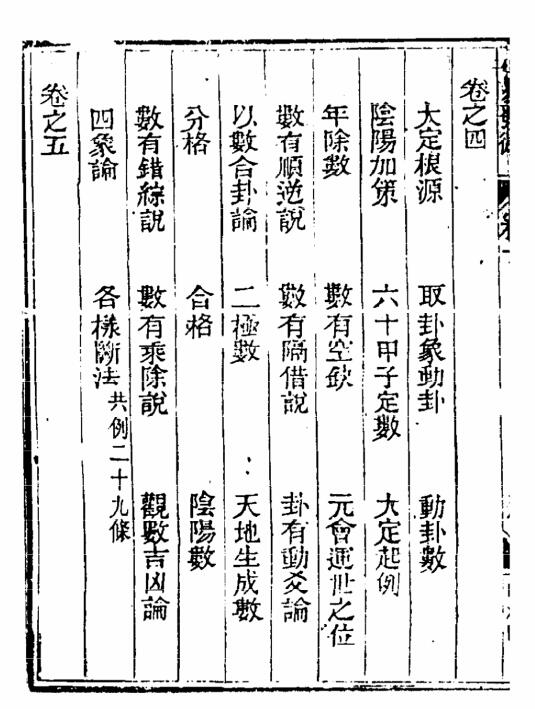 卷之四
大定根源 取卦象動卦 動卦數
陰陽加策 六十甲子定數 大定起例
年除數 數有空缺 元會運世之位
數有順逆說 數有隔借說 卦有動爻論
以數合卦論 二極數 天地生成數
分格 合格 陰陽數
數有錯綜說 數有乘除說 觀數吉凶論
四象論 各樣斷法 共例二十九條
卷之五